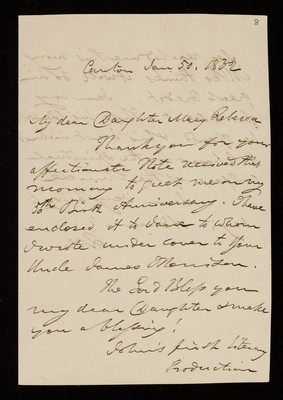 8
Canton Jan 5th. 1832
My dear Daughter Mary Rebecca
Thank you for your
affectionate Note received this
morning to greet me on my
50th Birth Anniversary. I have
enclosed it to to whom
I wrote under cover to your
Uncle James Morrison.
The Lord Bless you
my dear Daughter & make
you a blessing!
John's first literary
Production